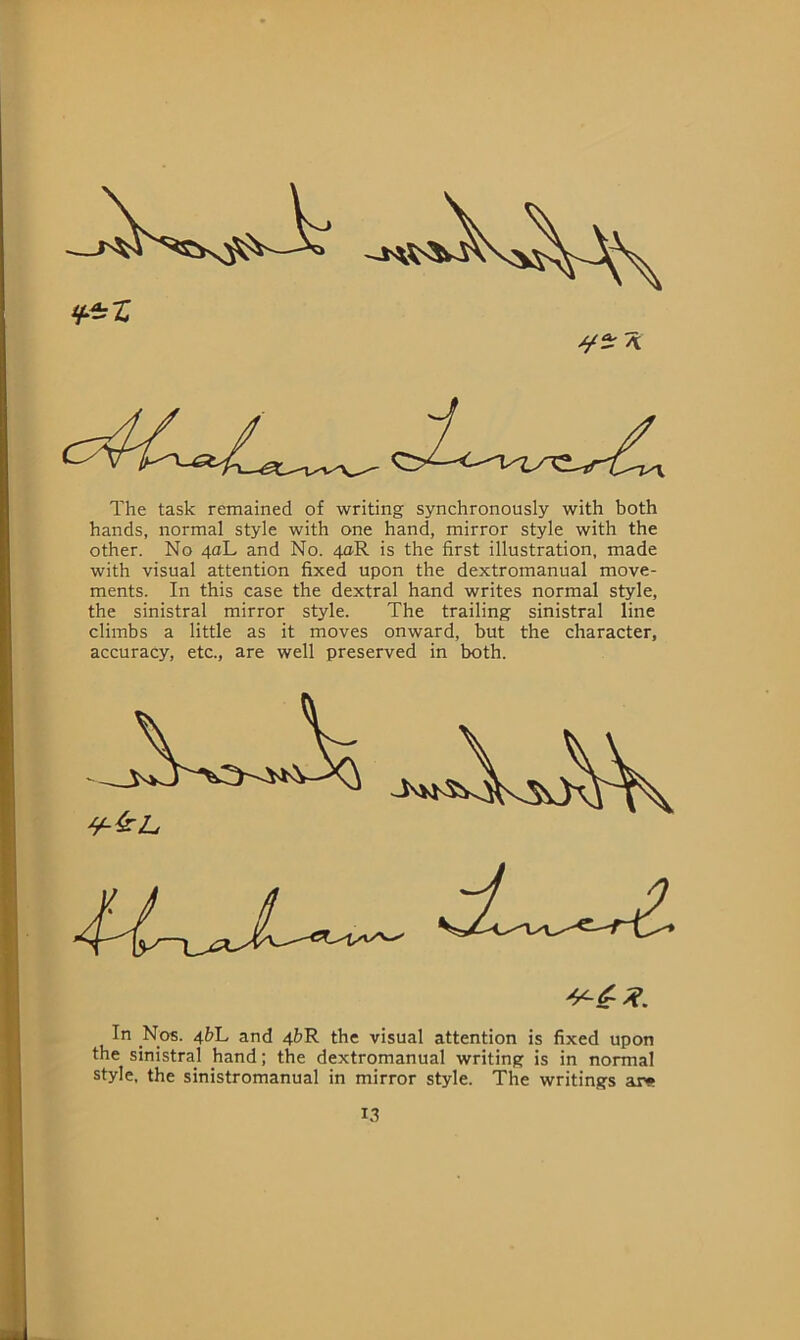 4aL
4aR
The task remained of writing synchronously with both
hands, normal style with one hand, mirror style with the
other. No 4aL and No. 4aR is the first illustration, made
with visual attention fixed upon the dextromanual move-
ments. In this case the dextral hand writes normal style,
the sinistral mirror style. The trailing sinistral line
climbs a little as it moves onward, but the character,
accuracy, etc., are well preserved in both.
4bL
4bR.
In Nos. 4bL and 4bR the visual attention is fixed upon
the sinistral hand; the dextromanual writing is in normal
style, the sinistromanual in mirror style. The writings are
13